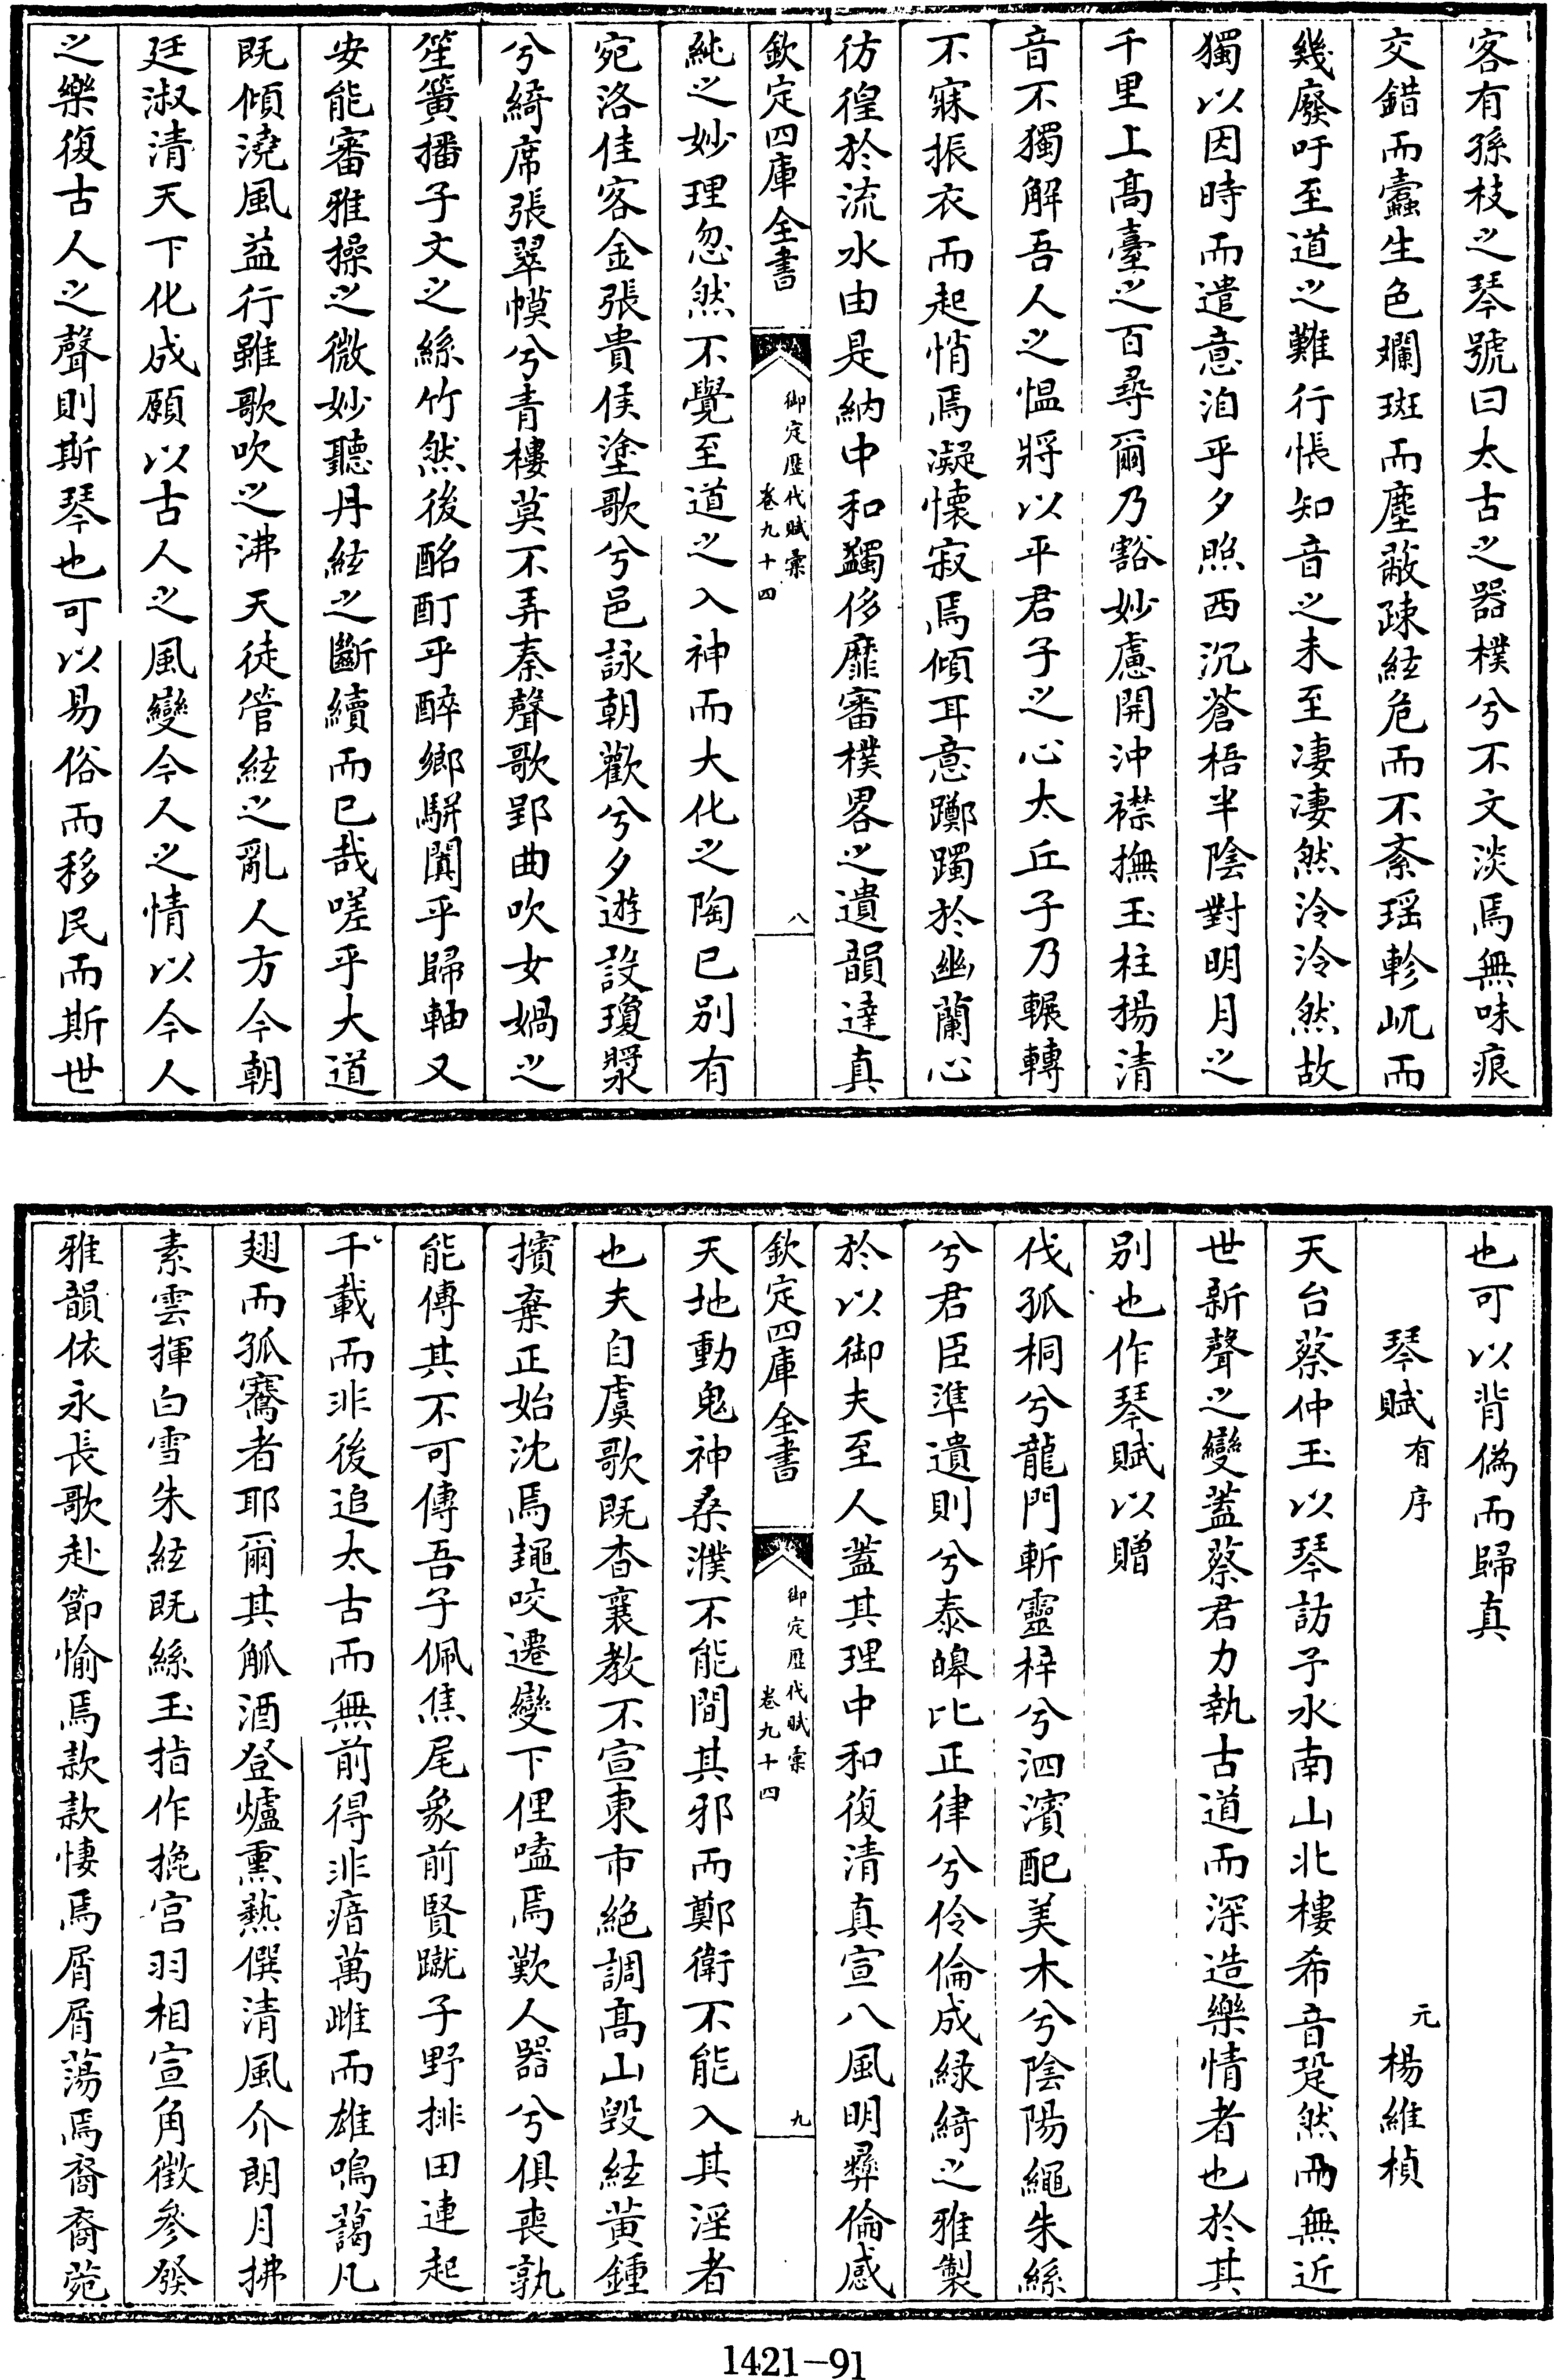 客有孫枝之琴號曰太古之器樸兮不文淡焉無味痕
交錯而蠧生色斕斑而塵蔽疎絃危而不紊瑶軫屼而
幾廢吁至道之難行悵知音之未至凄凄然泠泠然故
獨以因時而遣意洎乎夕照西沉蒼梧半陰對明月之
千里上髙臺之百尋爾乃豁妙慮開沖襟撫玉柱揚清
音不獨解吾人之愠將以平君子之心太丘子乃輾轉
不寐振衣而起悄焉凝懷寂焉傾耳意躑躅於幽蘭心
彷徨於流水由是納中和蠲侈靡審樸畧之遺韻達真
欽定四庫全書
御定歴代賦彙
卷九十四
八
純之妙理忽然不覺至道之入神而大化之陶已别有
宛洛佳客金張貴侯塗歌兮邑詠朝歡兮夕遊設瓊漿
兮綺席張翠幙兮青樓莫不弄秦聲歌郢曲吹女媧之
笙簧播子文之絲竹然後酩酊乎醉鄉駢闐乎歸軸又
安能審雅操之微妙聽丹絃之斷續而已哉嗟乎大道
既傾澆風益行雖歌吹之沸天徒管絃之亂人方今朝
廷淑清天下化成願以古人之風變今人之情以今人
之樂復古人之聲則斯琴也可以易俗而移民而斯世
也可以背偽而歸真
琴賦有序
元
楊維楨
天台蔡仲玉以琴訪予水南山北樓希音跫然而無近
世新聲之變蓋蔡君力執古道而深造樂情者也於其
别也作琴賦以贈
伐孤桐兮龍門斬靈梓兮泗濱配美木兮陰陽繩朱絲
兮君臣準遺則兮泰皞比正律兮伶倫成緑綺之雅製
於以御夫至人蓋其理中和復清真宣八風明彛倫感
欽定四庫全書
御定歴代賦彙
卷九十四
九
天地動鬼神桑濮不能間其邪而鄭衛不能入其淫者
也夫自虞歌既杳襄教不宣東市絶調髙山毁絃黄鍾
擯棄正始沈焉䵷咬遷變下俚嗑焉歎人器兮俱喪孰
能傳其不可傳吾子佩焦尾象前賢蹴子野排田連起
千載而非後追太古而無前得非瘖萬雌而雄鳴藹凡
翅而孤騫者耶爾其觚酒登爐熏爇僎清風介朗月拂
素雲揮白雪朱絃既絲玉指作挽宫羽相宣角徵參發
雅韻依永長歌赴節愉焉款款悽焉屑屑蕩焉裔裔菀
1421－91